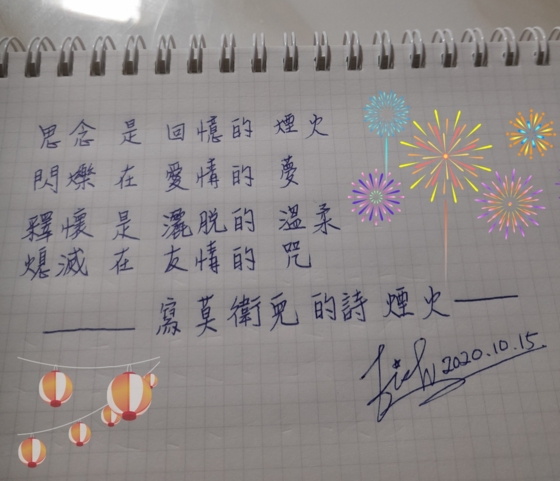 思念是回憶的煙火
閃爍在愛情的夢
釋懷是灑脫的溫柔
熄滅在友情的咒
寫莫衛兒的詩煙火
2020.10.15.